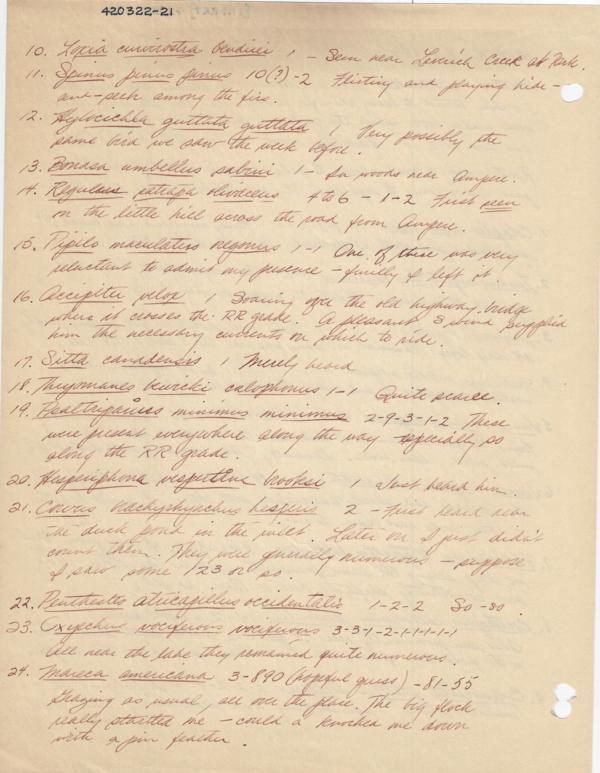 420322-21
10. Loxia curvirostra bendirei 1 - Seen near Leverich Creek at Park.
11. Spinus pinus pinus 10(?)-2 Flirting and playing hide-
and-seek among the firs.
12. Hylocichla guttata guttata 1 Very possibly the
same bird we saw the week before.
13. Bonasa umbellus sabini 1 - In woods near Ampere.
14. Regulus satrapa olivaceus 4 to 6 - 1-2 First seen
on the little hill across the road from Ampere.
15. Pipilo maculatus oregonus 1-1 One of these was very
reluctant to admit my presence - finally I left it.
16. Accipiter velox 1 Soaring over the old highway bridge
where it crosses the RR grade. A pleasant S wind supplied
him the necessary currents on which to ride.
17. Sitta canadensis 1 Merely heard
18. Thryomanes bewicki calophonus 1-1 Quite scarce.
19. Psaltriparus minimus minimus 2-9-3-1-2 These
were present everywhere along the way especially so
along the RR grade.
20. Hesperiphona vespertina brooksi 1 Just heard him.
21. Corvus brachyrhynchos hesperis 2 - First heard near
the duck pond in the inlet. Later on I just didn't
count them. They were generally numerous - suppose
I saw some 123 or so.
22. Penthestes atricapillus occidentalis 1-2-2 So-so.
23. Oxyechus vociferous vociferous 3-3-1-2-1-1-1-1-1
All near the lake they remained quite numerous.
24. Mareca americana 3-890 (hopeful guess) -81-55
Grazing as usual, all over the place. The big flock
really startled me - could a knocked me down
with a pin feather.